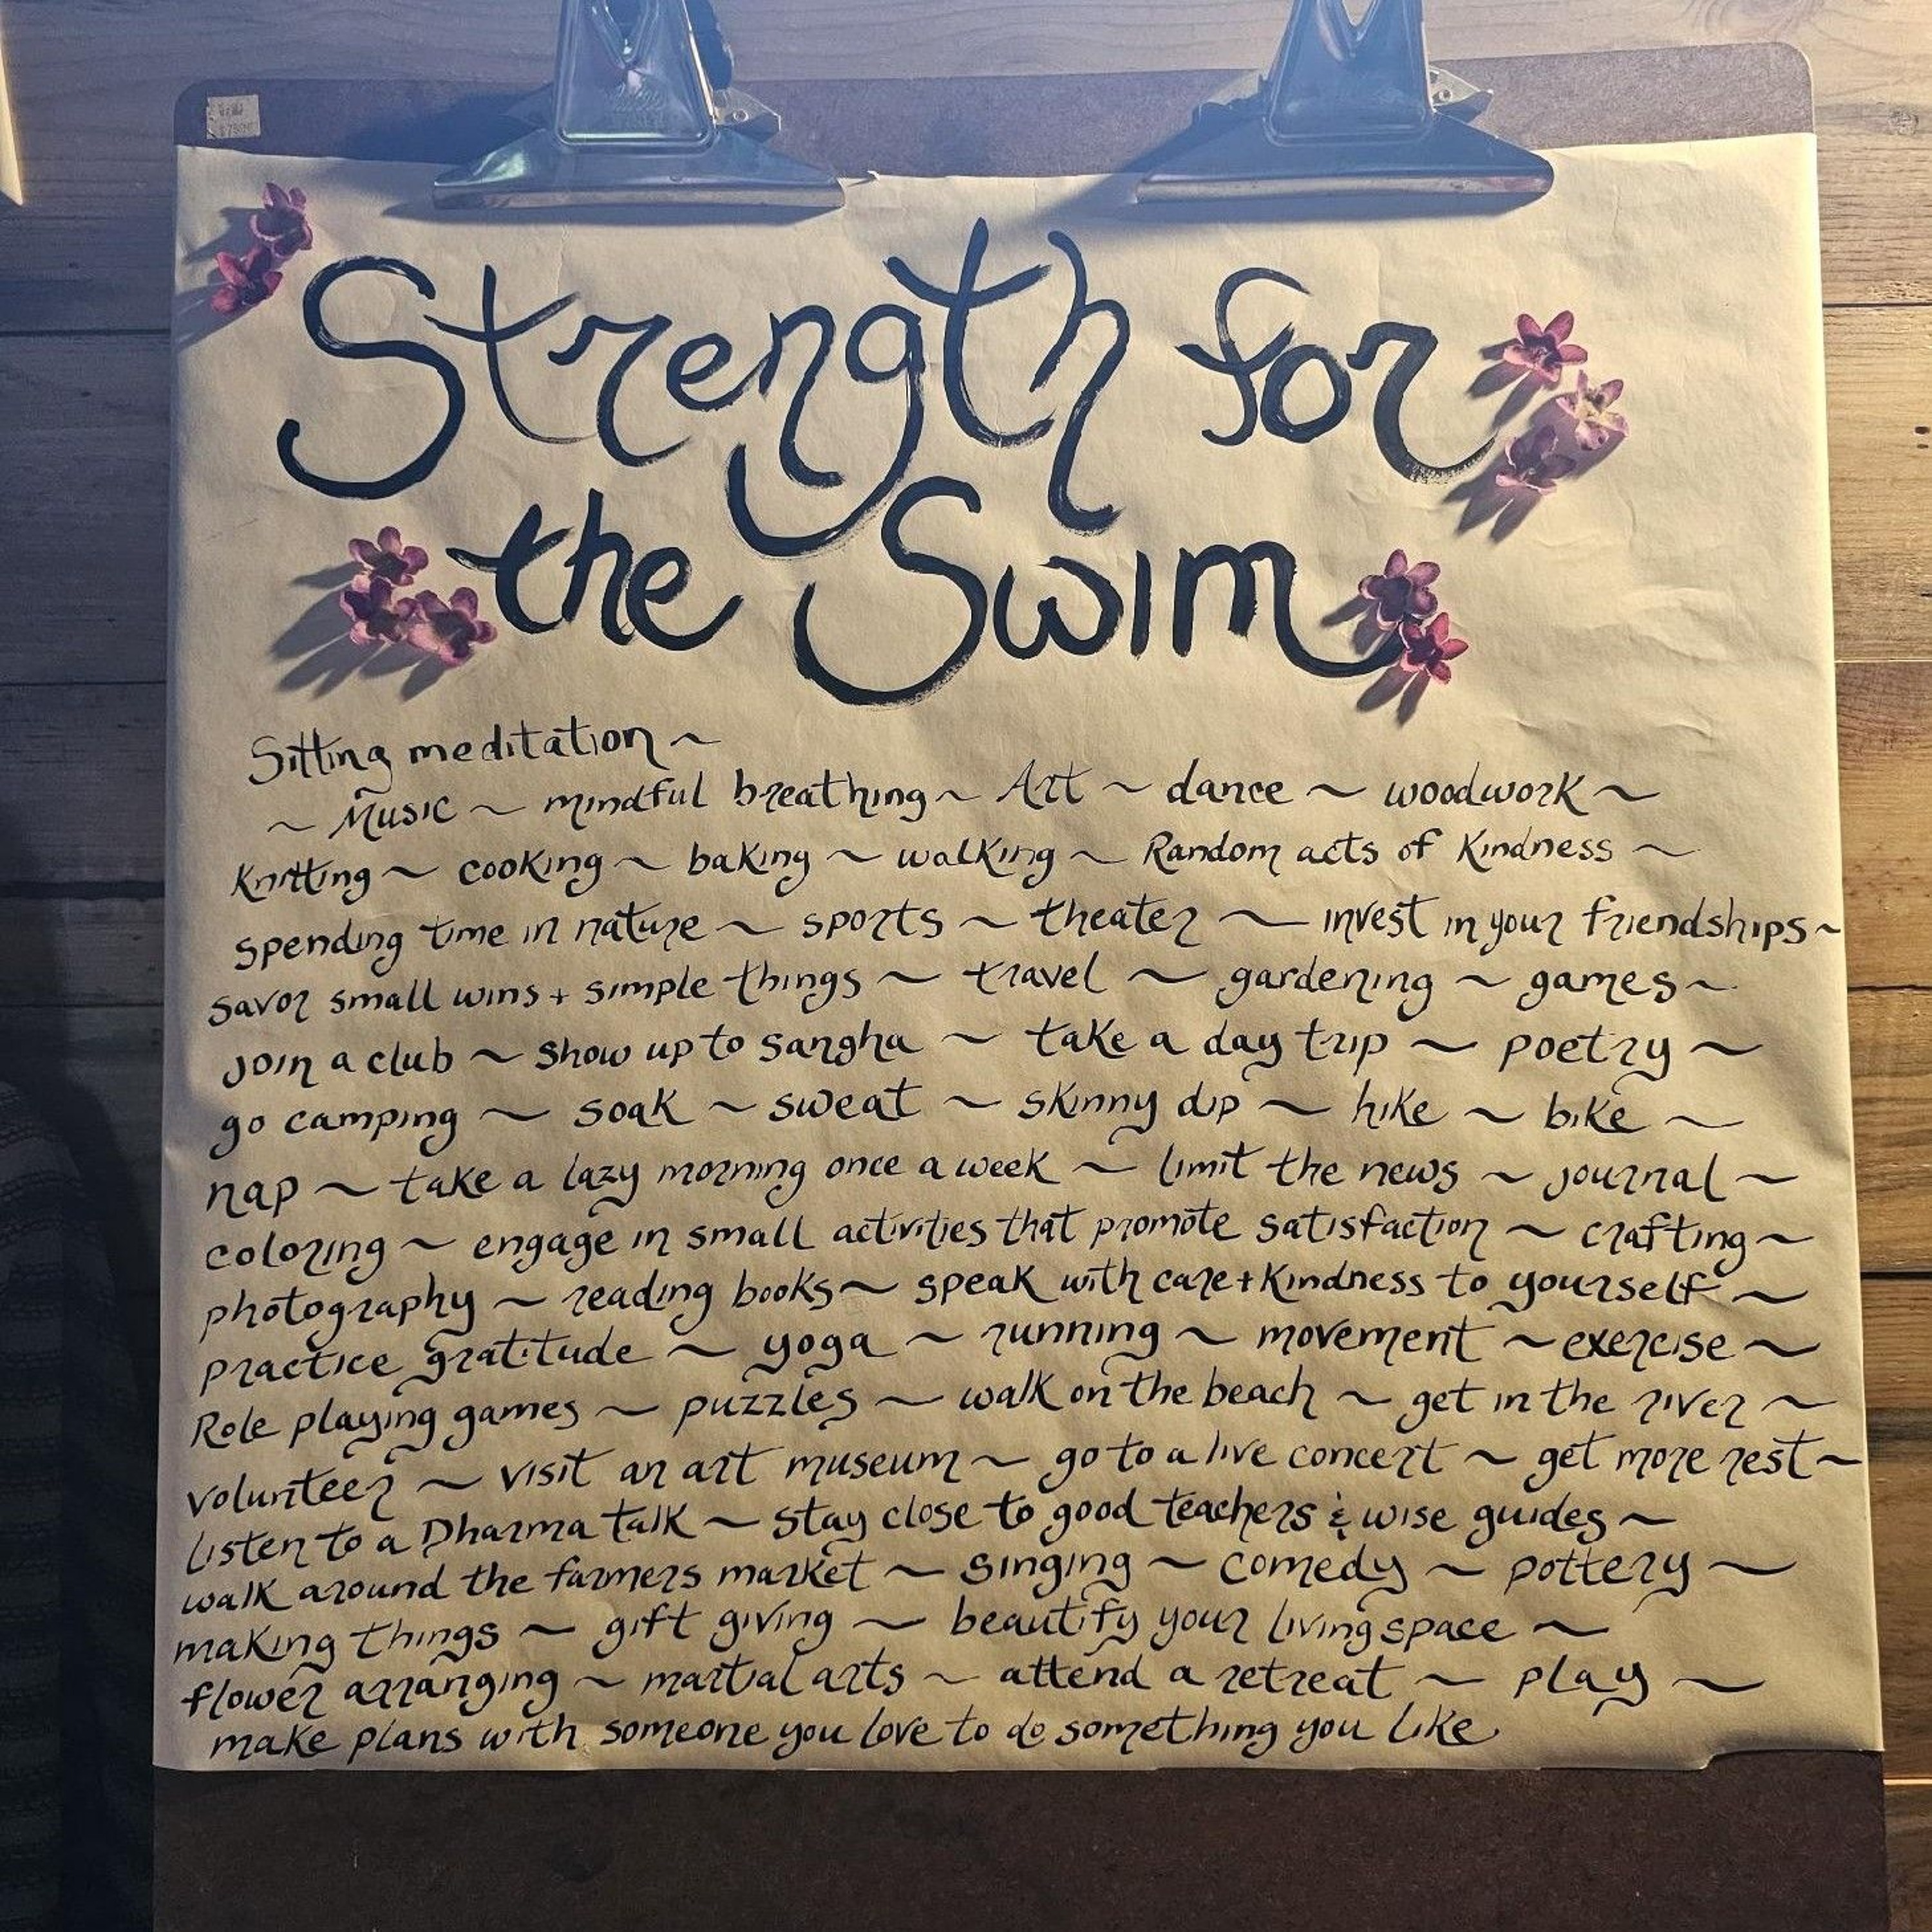 Strength for
the Swim
Sitting meditation ~
~ Music ~ mindful breathing ~ Art ~ dance ~ woodwork ~
Knitting ~ cooking ~ baking ~ walking ~ Random acts of Kindness ~
spending time in nature ~ sports ~ theater ~ invest in your friendships ~
savor small wins + simple things ~ travel ~ gardening ~ games ~
join a club ~ show up to sangha ~ take a day trip ~ poetry ~
go camping ~ soak ~ sweat ~ skinny dip ~ hike ~ bike ~
nap ~ take a lazy morning once a week ~ limit the news ~ journal ~
coloring ~ engage in small activities that promote satisfaction ~ crafting ~
photography ~ reading books ~ speak with care + Kindness to yourself ~
practice gratitude ~ yoga ~ running ~ movement ~ exercise ~
Role playing games ~ puzzles ~ walk on the beach ~ get in the river ~
volunteer ~ visit an art museum ~ go to a live concert ~ get more rest ~
listen to a Dharma talk ~ stay close to good teachers & wise guides ~
walk around the farmers market ~ singing ~ comedy ~ pottery ~
making things ~ gift giving ~ beautify your living space ~
flower arranging ~ martial arts ~ attend a retreat ~ play ~
make plans with someone you love to do something you like